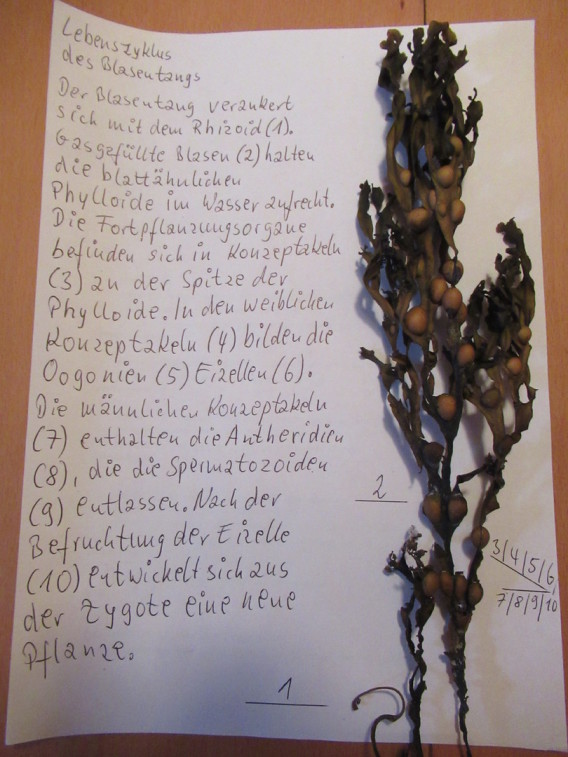 Lebenszyklus
des Blasentangs
Der Blasentang verankert
sich mit dem Rhizoid (1).
Gasgefüllte Blasen (2) halten
die blattähnlichen
Phylloide im Wasser aufrecht.
Die Fortpflanzungsorgane
befinden sich in Konzeptakeln
(3) an der Spitze der
Phylloide. In den weiblichen
Konzeptakeln (4) bilden die
Oogonien (5) Eizellen (6).
Die männlichen Konzeptakeln
(7) enthalten die Antheridien
(8), die die Spermatozoiden
(9) entlassen. Nach der
Befruchtung der Eizelle
(10) entwickelt sich aus
der Zygote eine neue
Pflanze.
2
3/4/5/6,
7/8/9/10
1